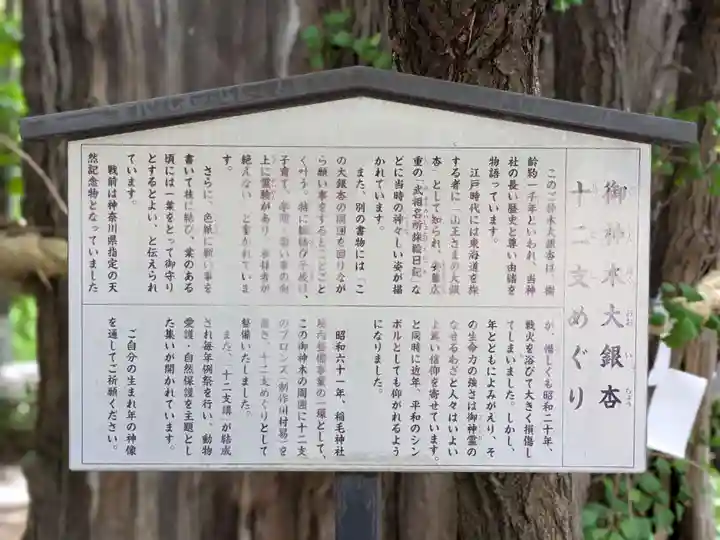 御神木大銀杏
十二支めぐり
このご神木大銀杏は、樹
齢約一千年といわれ、当神
社の長い歴史と尊い由緒を
物語っています。
江戸時代には東海道を旅
する者に「山王さまの大銀
杏」として知られ、安藤広
重の「武相名所旅絵日記」な
どに当時の神々しい姿が描
かれています。
また、別の書物には「こ
の大銀杏の周囲を回りなが
ら願い事をするとことごと
く叶う。特に
子育て、
上に霊験があり、参拝者が
絶えない」と書かれていま
す。
さらに、色紙に願い事を
書いて枝に結び、葉のある
頃には一葉をとって御守り
とするとよい、と伝えられ
ています。
戦前は神奈川県指定の天
然記念物となっていました
が、惜しくも昭和二十年、
戦火を浴びて大きく損傷し
てしまいました。しかし、
年とともによみがえり、そ
の生命力の強さは御神霊の
なせるわざと人々はいよい
よ篤い信仰を寄せています。
と同時に近年、平和のシン
ボルとしても仰がれるよう
になりました。
昭和六十一年、稲毛神社
境内整備事業の一環として、
この御神木の周囲に十二支
のブロンズ(制作田村易)を
置き、十二支めぐりとして
整備いたしました。
また、「十二支講」が結成
され毎年例祭を行い、動物
愛護・自然保護を主題とし
た集いが開かれています。
ご自分の生まれ年の神像
を通してご祈願ください。